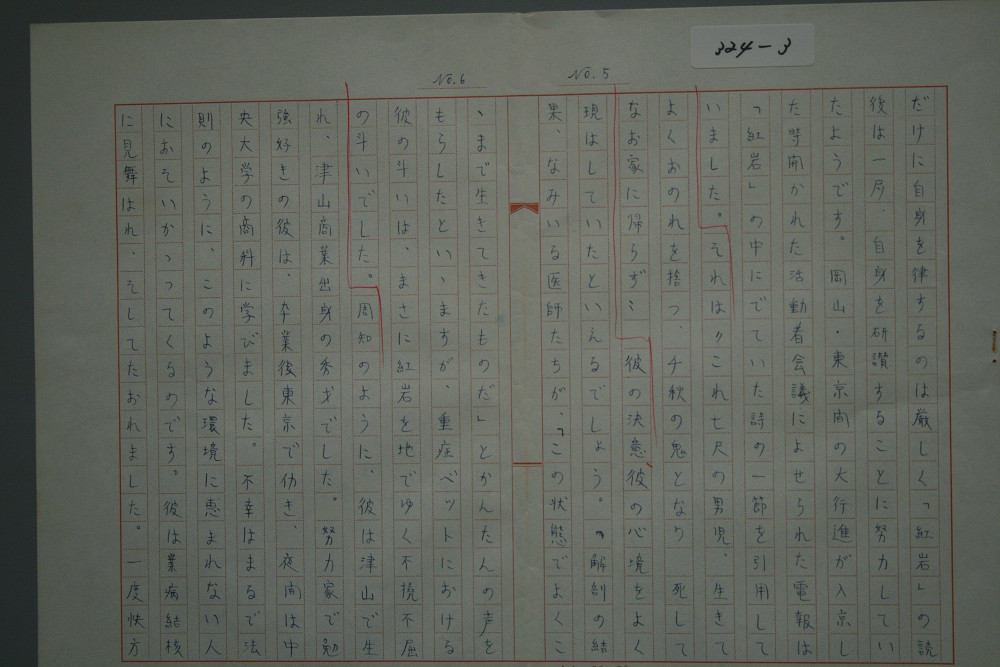 324-3
No.5
だけに自身を律するのは厳しく「紅岩」の読
後は一層、自身を研讃することに努力してい
たようです。岡山・東京間の大行進が入京し
た時開かれた活動者会議によせられた電報は
「紅岩」の中にでていた詩の一節を引用して
いました。それは〃これ七尺の男児、生きて
よくおのれを捨つ、千秋の鬼となり 死して
なお家に帰らずミ 彼の決意、彼の心境をよく
現はしていたといえるでしょう。「解剖の結
果、なみいる医師たちが、「この状態でよくこ
No.6
ゝまで生きてきたものだ」とかんたんの声を
もらしたといゝますが、重症ベットにおける
彼の斗いは、まさに紅岩を地でゆく不撓不屈
の斗いでした。周知のように、彼は津山で生
れ、津山商業出身の秀才でした。努力家で勉
強好きの彼は、卒業後東京で仂き、夜間は中
央大学の商科に学びました。不幸はまるで法
則のように、このような環境に恵まれない人
におそいかゝってくるのです。彼は業病結核
に見舞はれ、そしてたおれました。一度快方